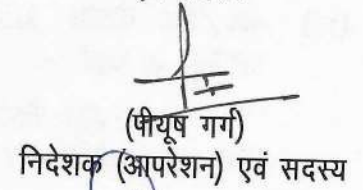 (पीयूष गर्ग)
निदेशक (आपरेशन) एवं सदस्य